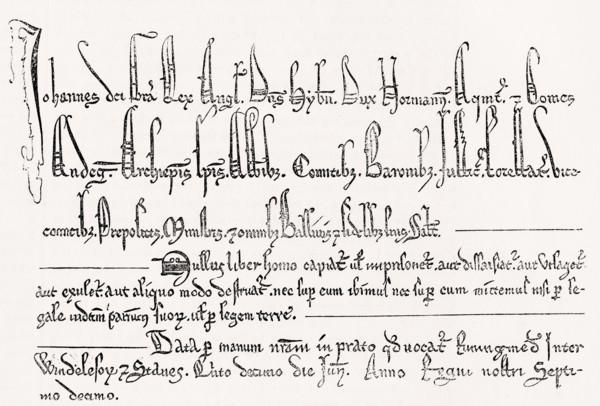 Johannes dei gra Rex Angl. Dns Hybn. Dux Normann. Aqnit. ⁊ Comes
Andeg. Archiepis. Epis. Abbibz. Comitibz. Baronibz. Justic. Forestar. Vice-
comitibz. Prepositis. Ministris. ⁊ omnibz Ballivis ⁊ fidelibz suis. Salt.
Nullus liber homo capiat. ul' imprisonet. aut dissaisiat. aut Utlaget.
aut exulet. aut aliquo modo destruat. nec sup eum ibimus nec sup eum mittemus nisi p le-
gale iudicium parium suorz. ul' p legem terre.
Data p manum nram in prato qd vocat Runingmed Inter
Windelesorz ⁊ Stanes. Quinto decimo die Jun. Anno Regni nostri Septi-
mo decimo.